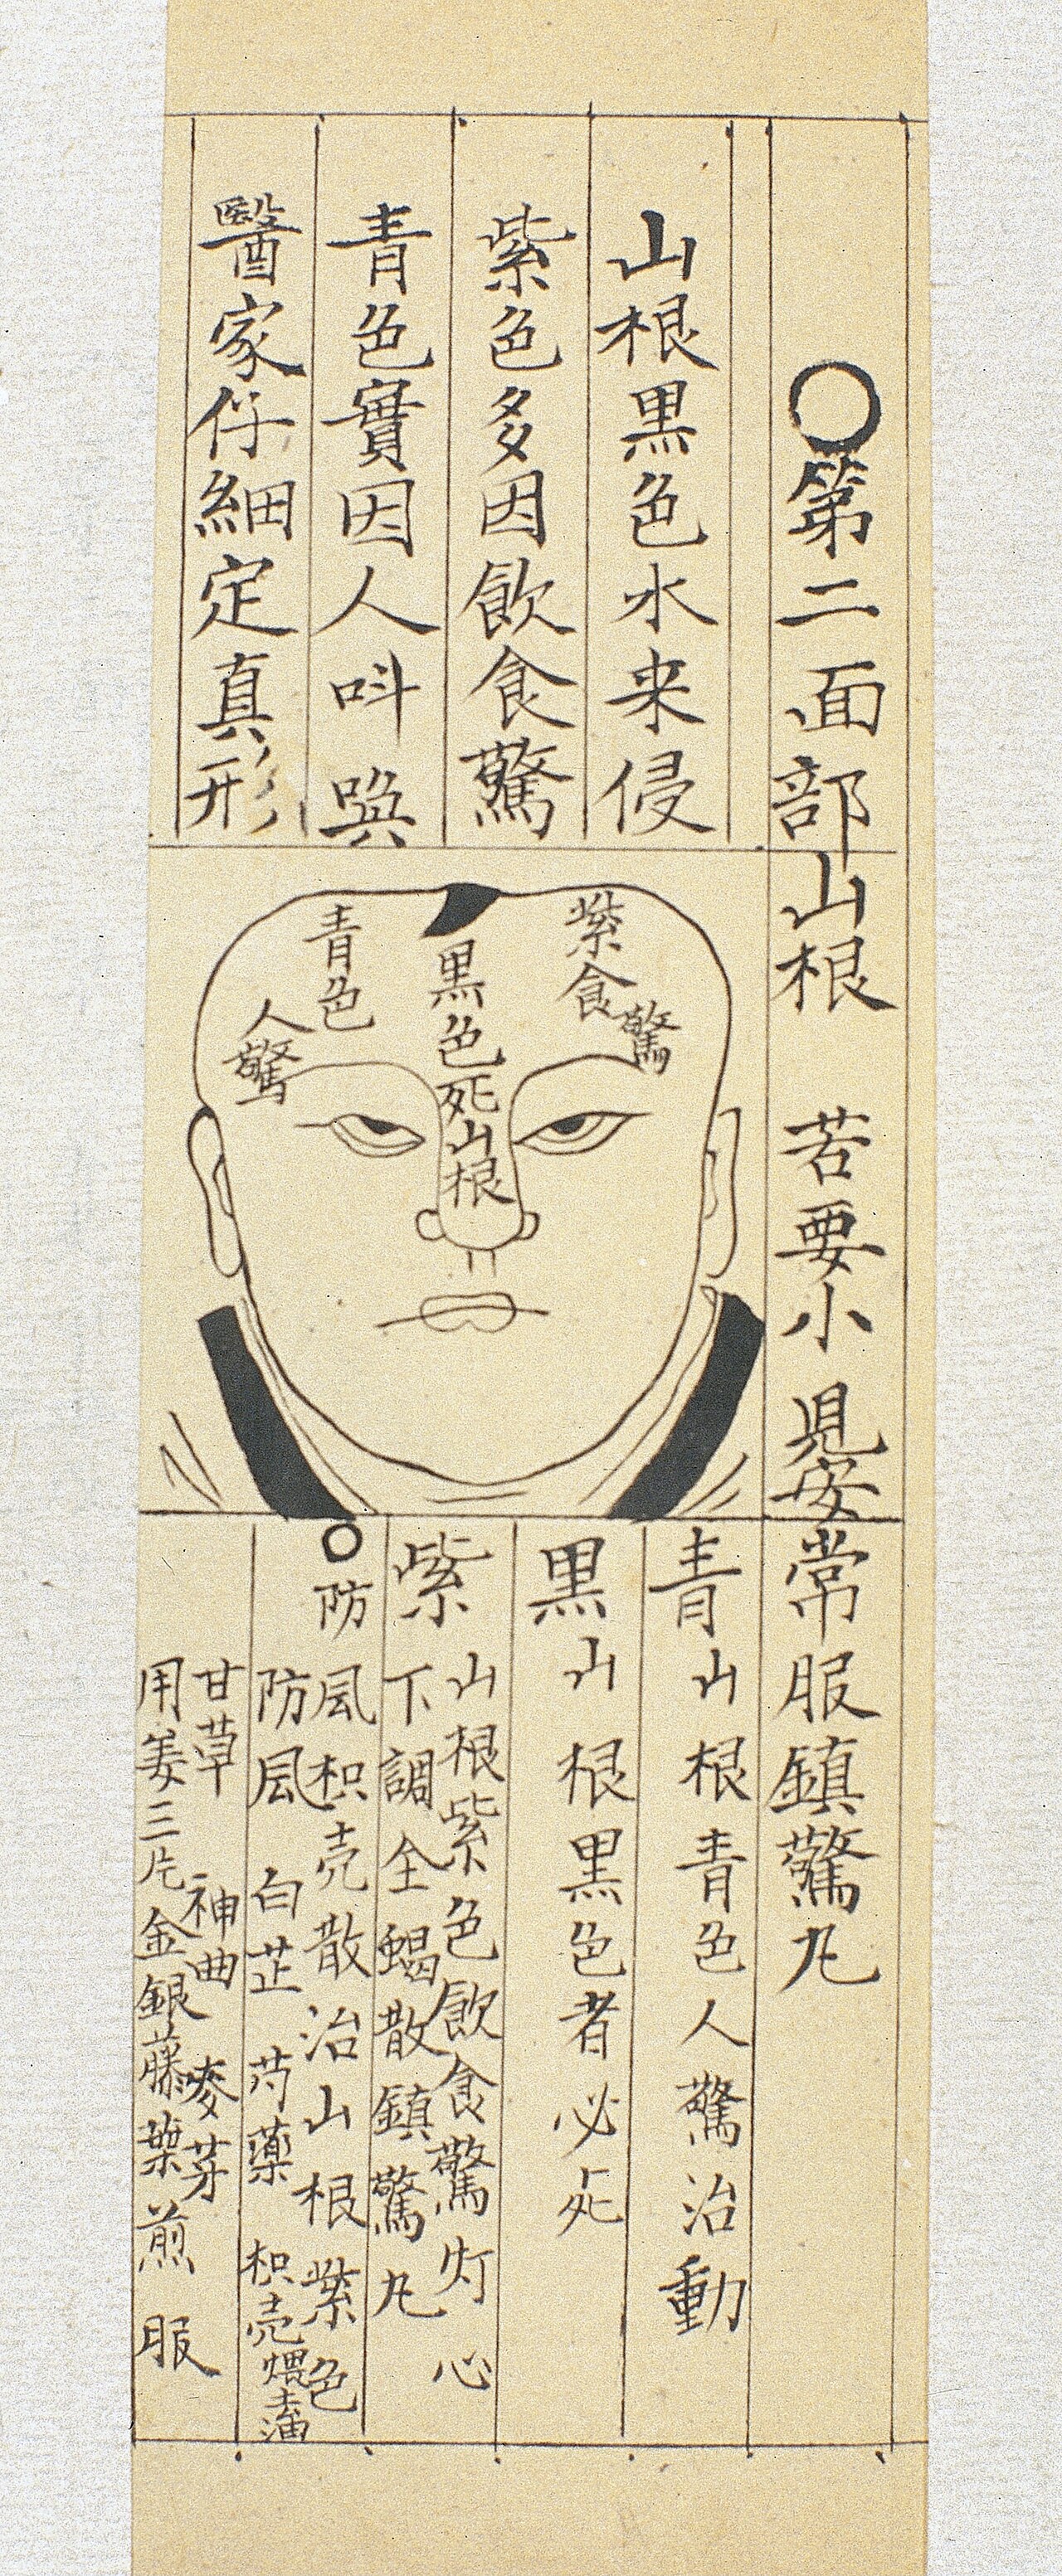 〇第二面部山根 若要小児安常服鎮驚丸
山根黒色水来侵
紫色多因飲食驚
青色實因人呌喚
醫家仔細定真形
紫食驚
黒色死山根
青色人驚
青山根青色人驚治動
黒山根黒色者必死
紫山根紫色飲食驚灯心
下調全蝎散鎮驚丸
〇防風枳壳散治山根紫色
防風 白芷 芍藥 枳壳煨去油
甘草 神曲 麥芽
用姜三片金銀藤葉煎服